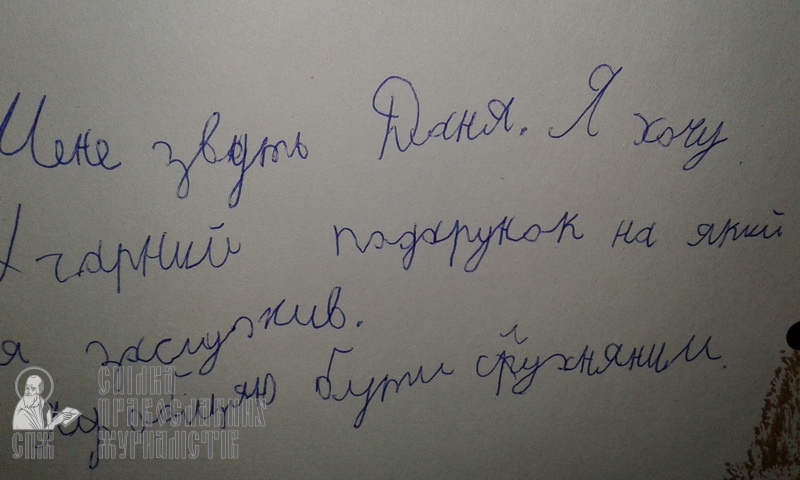 Мене звуть Даня. Я хочу
гарний подарунок на який
я заслужив.
обіцяю бути слухняним.
СПІЛКА
ПРАВОСЛАВНИХ
ЖУРНАЛІСТІВ
СПЖ